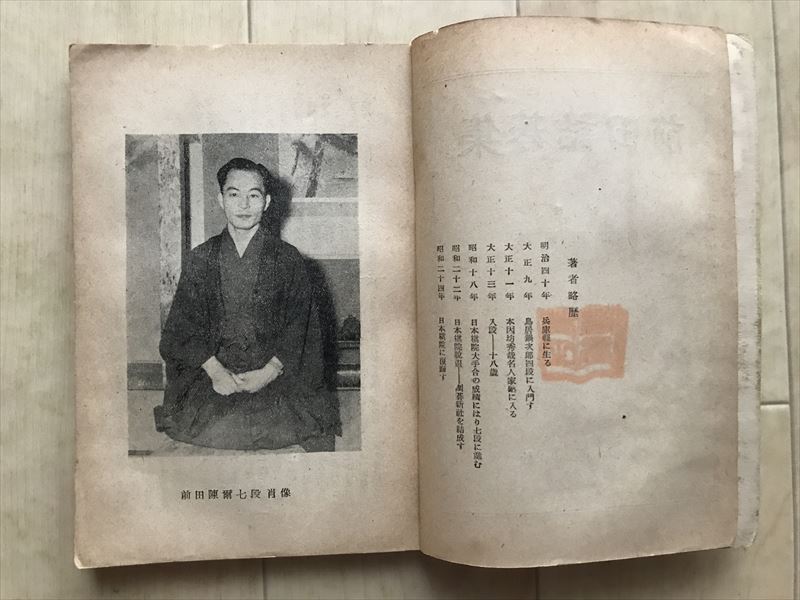 前田陳爾七段肖像
著者略歴
明治四十年 兵庫縣に生る
大正九年 鳥居鍋次郎四段に入門す
大正十一年 本因坊秀哉名人家塾に入る
大正十三年 入段——十八歳
昭和十八年 日本棋院大手合の成績により七段に進む
昭和二十二年 日本棋院脱退——圍碁新社を結成す
昭和二十四年 日本棋院に復歸す